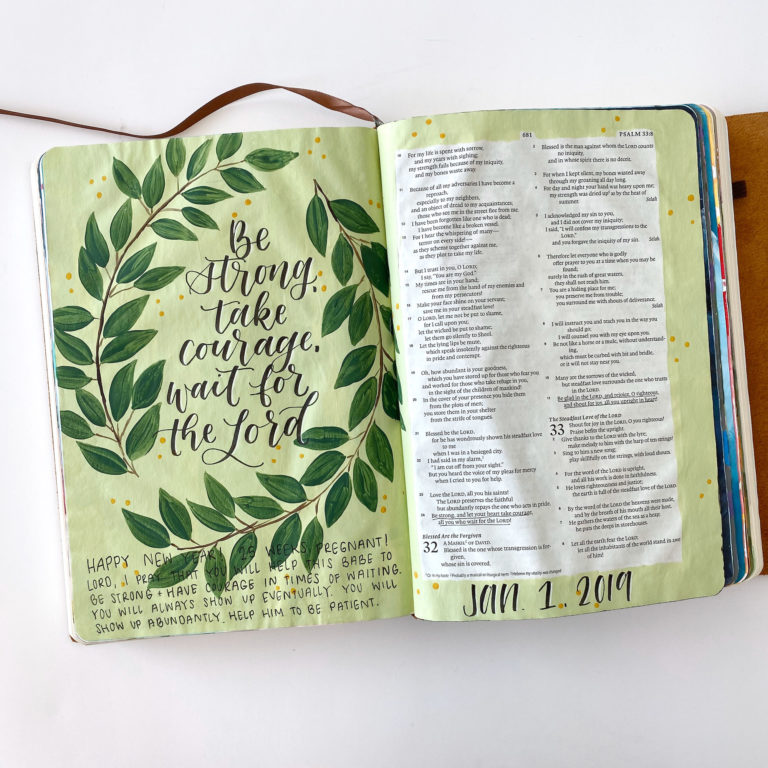 Be
strong,
take
courage,
wait for
the Lord
HAPPY NEW YEAR! 28 WEEKS PREGNANT!
LORD, I PRAY THAT YOU WILL HELP THIS BABE TO
BE STRONG + HAVE COURAGE IN TIMES OF WAITING.
YOU WILL ALWAYS SHOW UP EVENTUALLY. YOU WILL
SHOW UP ABUNDANTLY. HELP HIM TO BE PATIENT.
681 PSALM 33:8
10 For my life is spent with sorrow,
and my years with sighing;
my strength fails because of my iniquity,
and my bones waste away.
11 Because of all my adversaries I have become a
reproach,
especially to my neighbors,
and an object of dread to my acquaintances;
those who see me in the street flee from me.
12 I have been forgotten like one who is dead;
I have become like a broken vessel.
13 For I hear the whispering of many—
terror on every side!—
as they scheme together against me,
as they plot to take my life.
14 But I trust in you, O LORD;
I say, "You are my God."
15 My times are in your hand;
rescue me from the hand of my enemies and
from my persecutors!
16 Make your face shine on your servant;
save me in your steadfast love!
17 O LORD, let me not be put to shame,
for I call upon you;
let the wicked be put to shame;
let them go silently to Sheol.
18 Let the lying lips be mute,
which speak insolently against the righteous
in pride and contempt.
19 Oh, how abundant is your goodness,
which you have stored up for those who fear you
and worked for those who take refuge in you,
in the sight of the children of mankind!
20 In the cover of your presence you hide them
from the plots of men;
you store them in your shelter
from the strife of tongues.
21 Blessed be the LORD,
for he has wondrously shown his steadfast love
to me
when I was in a besieged city.
22 I had said in my alarm,
"I am cut off from your sight."
But you heard the voice of my pleas for mercy
when I cried to you for help.
23 Love the LORD, all you his saints!
The LORD preserves the faithful
but abundantly repays the one who acts in pride.
24 Be strong, and let your heart take courage,
all you who wait for the LORD!
Blessed Are the Forgiven
32 A MASKIL OF DAVID.
Blessed is the one whose transgression is for-
given,
whose sin is covered.
2 Blessed is the man against whom the LORD counts
no iniquity,
and in whose spirit there is no deceit.
3 For when I kept silent, my bones wasted away
through my groaning all day long.
4 For day and night your hand was heavy upon me;
my strength was dried up as by the heat of
summer. Selah
5 I acknowledged my sin to you,
and I did not cover my iniquity;
I said, "I will confess my transgressions to the
LORD,"
and you forgave the iniquity of my sin. Selah
6 Therefore let everyone who is godly
offer prayer to you at a time when you may be
found;
surely in the rush of great waters,
they shall not reach him.
7 You are a hiding place for me;
you preserve me from trouble;
you surround me with shouts of deliverance.
Selah
8 I will instruct you and teach you in the way you
should go;
I will counsel you with my eye upon you.
9 Be not like a horse or a mule, without understand-
ing,
which must be curbed with bit and bridle,
or it will not stay near you.
10 Many are the sorrows of the wicked,
but steadfast love surrounds the one who trusts
in the LORD.
11 Be glad in the LORD, and rejoice, O righteous,
and shout for joy, all you upright in heart!
The Steadfast Love of the LORD
33 Shout for joy in the LORD, O you righteous!
Praise befits the upright.
2 Give thanks to the LORD with the lyre;
make melody to him with the harp of ten strings!
3 Sing to him a new song;
play skillfully on the strings, with loud shouts.
4 For the word of the LORD is upright,
and all his work is done in faithfulness.
5 He loves righteousness and justice;
the earth is full of the steadfast love of the LORD.
6 By the word of the LORD the heavens were made,
and by the breath of his mouth all their host.
7 He gathers the waters of the sea as a heap;
he puts the deeps in storehouses.
8 Let all the earth fear the LORD;
let all the inhabitants of the world stand in awe
of him!
Jan. 1, 2019